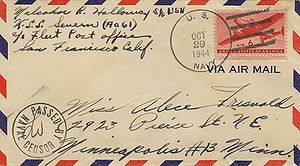 Malcolm R. Holloway S1/c USN
U.S.S. Severn (AO61)
c/o Fleet Post office
San Francisco Calif.
U. S.
OCT
29
1944
NAVY
6¢
UNITED STATES OF AMERICA
VIA AIR MAIL
PASSED BY
NAVAL
CENSOR
Miss Alice Friswold
2923 Pierce St. N.E.
Minneapolis #13 Minn.